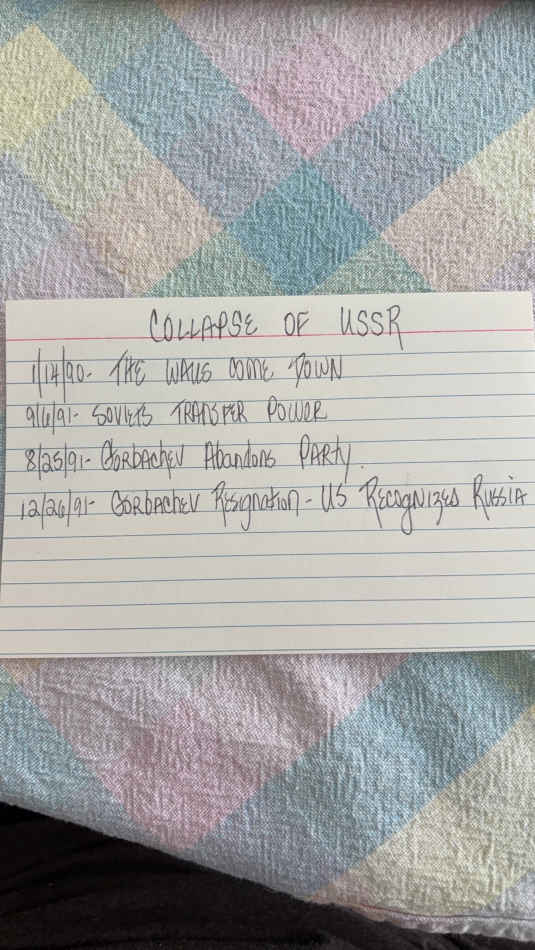 COLLAPSE OF USSR
1/14/90- THE WALLS COME DOWN
9/6/91- SOVIETS TRANSFER POWER
8/25/91- GORBACHEV Abandons PARTY.
12/26/91- GORBACHEV Resignation - US RECOGNIZES RUSSIA